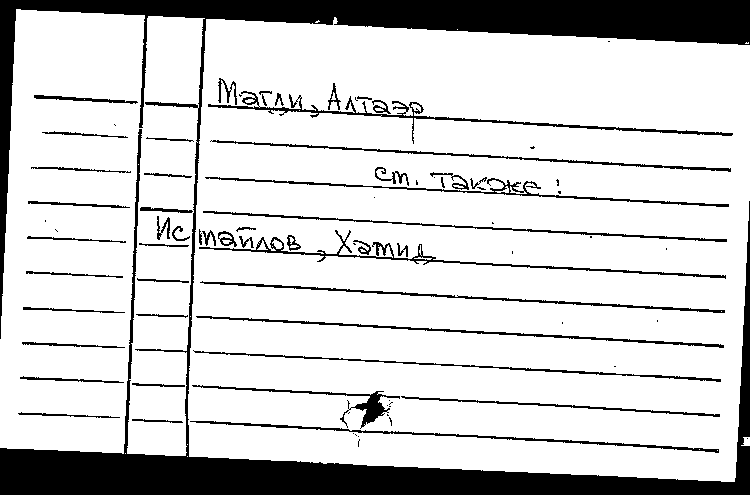 Мағли, Алтаэр
см. также:
Исмайлов, Хәмид